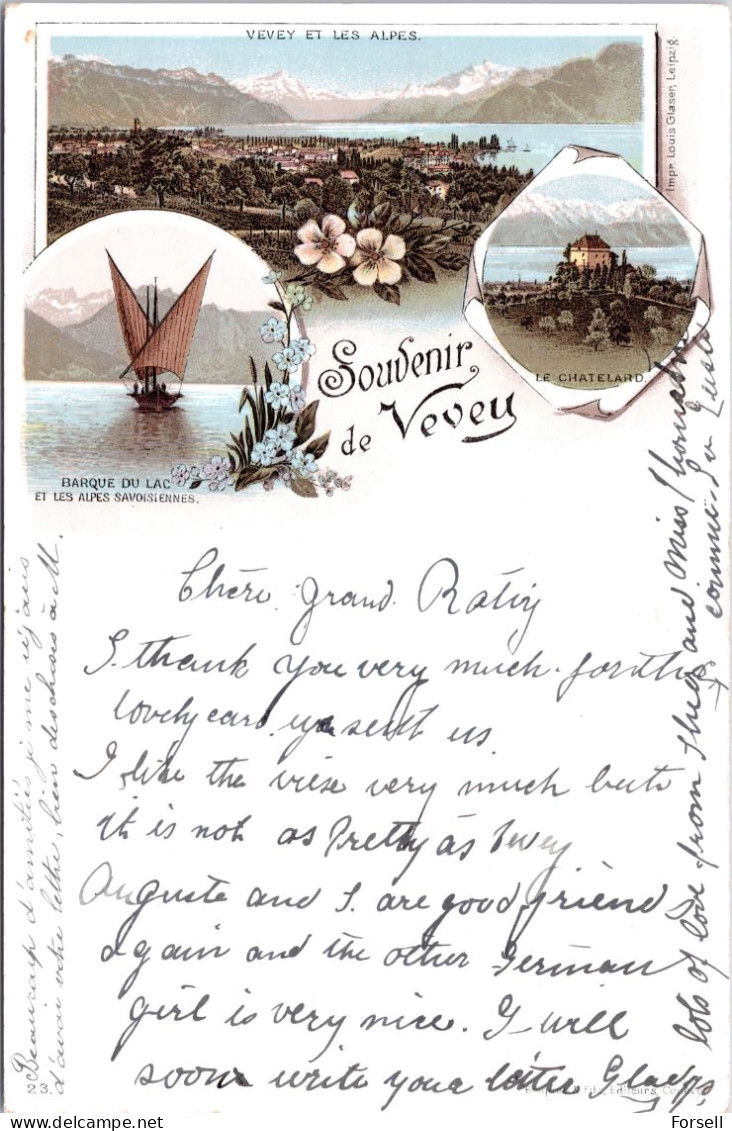 VEVEY ET LES ALPES.
Impr. Louis Glaser, Leipzig.
LE CHATELARD.
BARQUE DU LAC
ET LES ALPES SAVOISIENNES.
Souvenir
de Vevey
Chère grand
I thank you very much for the
lovely card yu sent us.
I like the viese very much but
it is not as Pretty as Vevey
Auguste and I are good friend
again and the other German
girl is very nice. I will
soon write your letter Gladys
lots of love from and Miss
comme
Beaucoup d'amitiés je me réjouis
d'avoir votre lettre, bien des choses à M.
23.
Editeurs,
Forsell @ www.delcampe.net